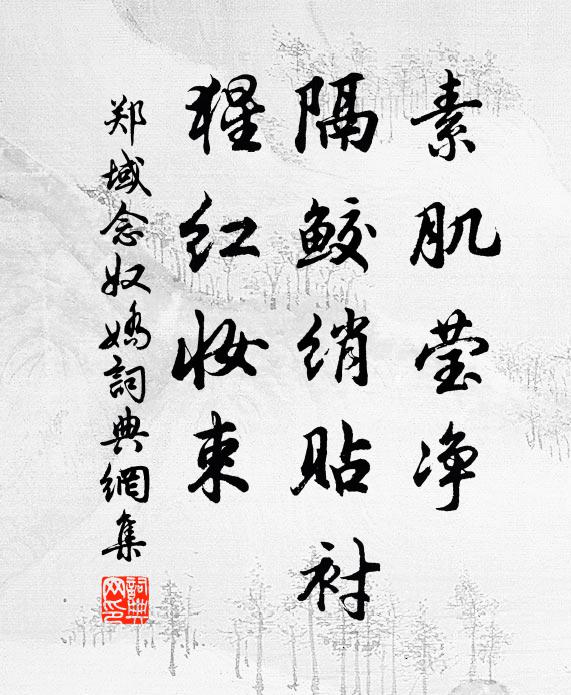 素肌莹净
隔鲛绡贴衬
猩红妆束
郑域念奴娇詞典網集
詞典网印